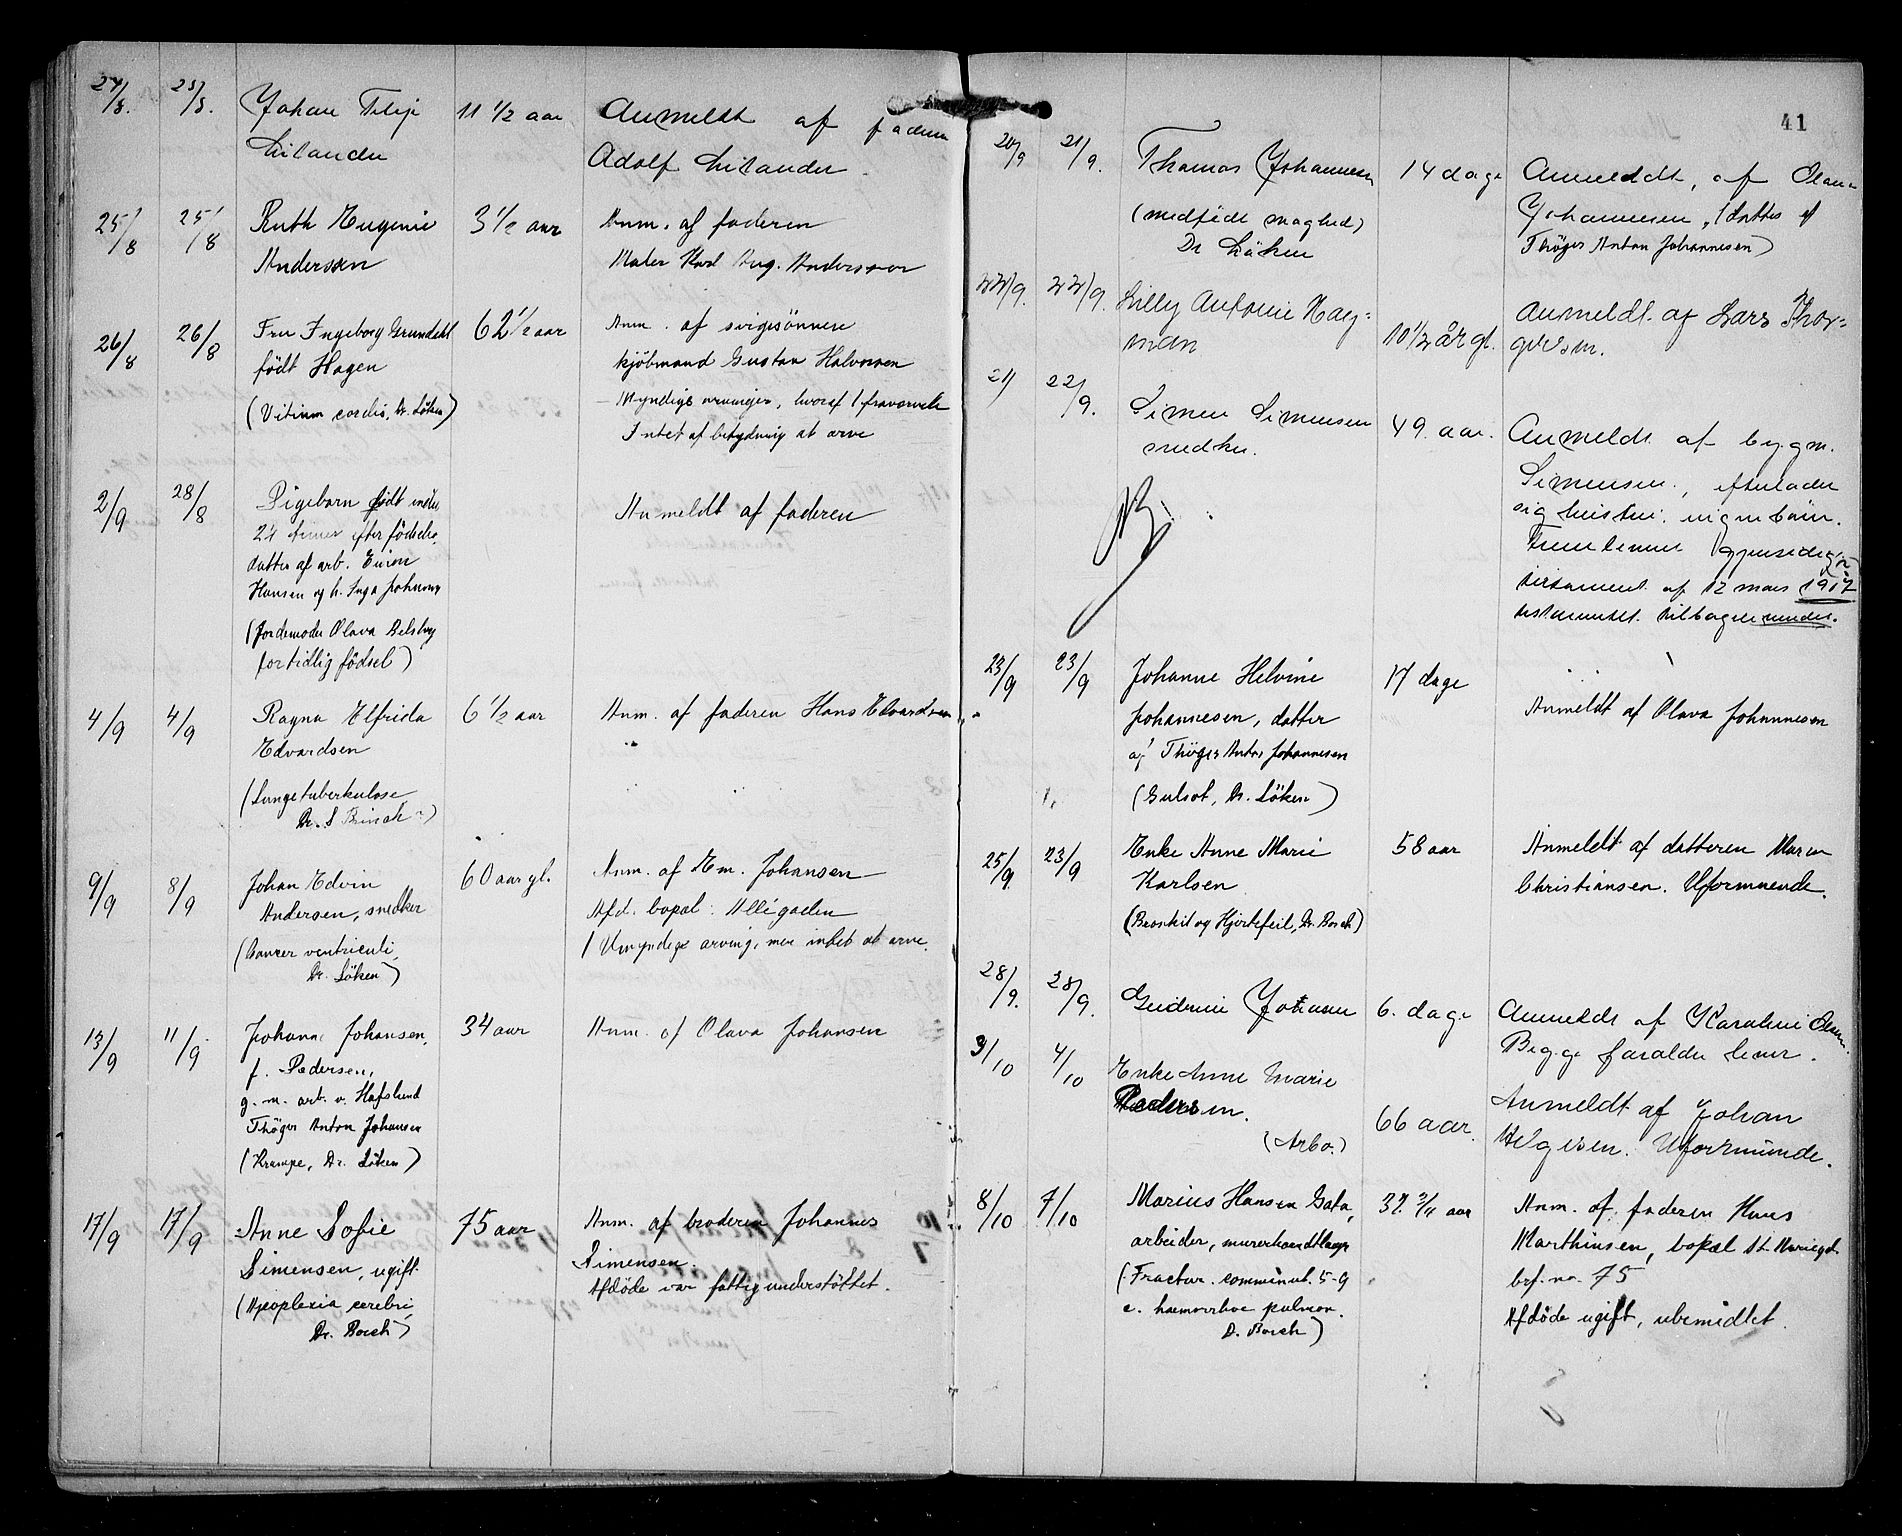 24/8. 25/8. Johan Filip 11 1/2 aar Anmeldt af faderen
Adolf
25/8 25/8 Ruth Eugenie 3 1/2 aar Anm. af faderen
Andersen Maler Karl Aug. Andersson
26/8 26/8 Fru Ingeborg Grundahl 62 1/2 aar Anm. af svigesönnen
födt Hagen kjöbmand Gustav Halvorsen
(Vitium cordis, Dr. Löken) Myndige arvinger, hvoraf 1 fraværende
Intet af betydning at arve
2/9 28/8 Pigebarn födt inden Anmeldt af faderen
24 timer efter födselen,
datter af arb. Einar
Hansen og h. Inga Johansen
(Jordemoder Olava
for tidlig födsel)
4/9 4/9 Ragna Elfrida 6 1/2 aar Anm. af faderen Hans Edvardsen
Edvardsen
(Lungetuberkulose
Dr. S
9/9 8/9 Johan Edvin 60 aar gl. Anm. af Em. Johansen
Andersen, snedker Afd. bopæl: Allégaden
(Cancer ventriculi, 1 Umyndige arving, men intet at arve.
Dr. Löken)
13/9 11/9 Johanne Johansen, 34 aar Anm. af Olava Johansen
f. Pedersen,
g. m. arb. v. Hafslund
Thöger Anton Johansen
(Krampe, Dr. Löken)
17/9 17/9 Anne Sofie 75 aar Anm. af broderen Johannes
Simensen, ugift Simensen.
(Apoplexia cerebri, Afdöde var fattigunderstöttet.
Dr. Borch)
41
20/9 21/9. Thomas Johannesen 14 dage Anmeldt, af Olava
(medfödt svaghed) Johannesen, (datter af
Dr Löken Thöger Anton Johannesen)
22/9. 22/9. Lilly Antonie Hag=
man 10 1/2 år gl. Anmeldt af Lars Thor=
21/ 22/9. Simen Simensen 49. aar. Anmeldt af bygm.
snedker. Simensen, efterlader
sig hustru, ingen børn.
gjensidig
testament af 12 mars 1917
testamentet
23/9 23/9 Johanne Helvine 17 dage Anmeldt af Olava Johannesen
Johannesen, datter
af Thöger Anton Johannesen
(Gulsot, Dr. Löken)
25/9. 23/9 Enke Anne Marie 58 aar Anmeldt af datteren Maren
Karlsen Christiansen. Uformuende.
(Bronkit og Hjertefeil, Dr. Borch)
28/9. 28/9. Johansen 6. dage Anmeldt af Karoline Olsen.
Begge foraldre lever.
3/10 4/10 Enke Anne Marie
Pedersen. 66 aar. Anmeldt af Johan
(Arbo.) Helgesen. Uformuende.
8/10 7/10 Marius Hansen Gata, 32 3/4 aar Anm. af faderen Hans
arbeider, murerhaandtlanger Marthinsen, bopæl St. Mariegd.
(Fractur. comminut. 5-9 brf. no. 75
c. haemorrhoe pulmon. Afdöde ugift, ubemidlet.
D. Borch)